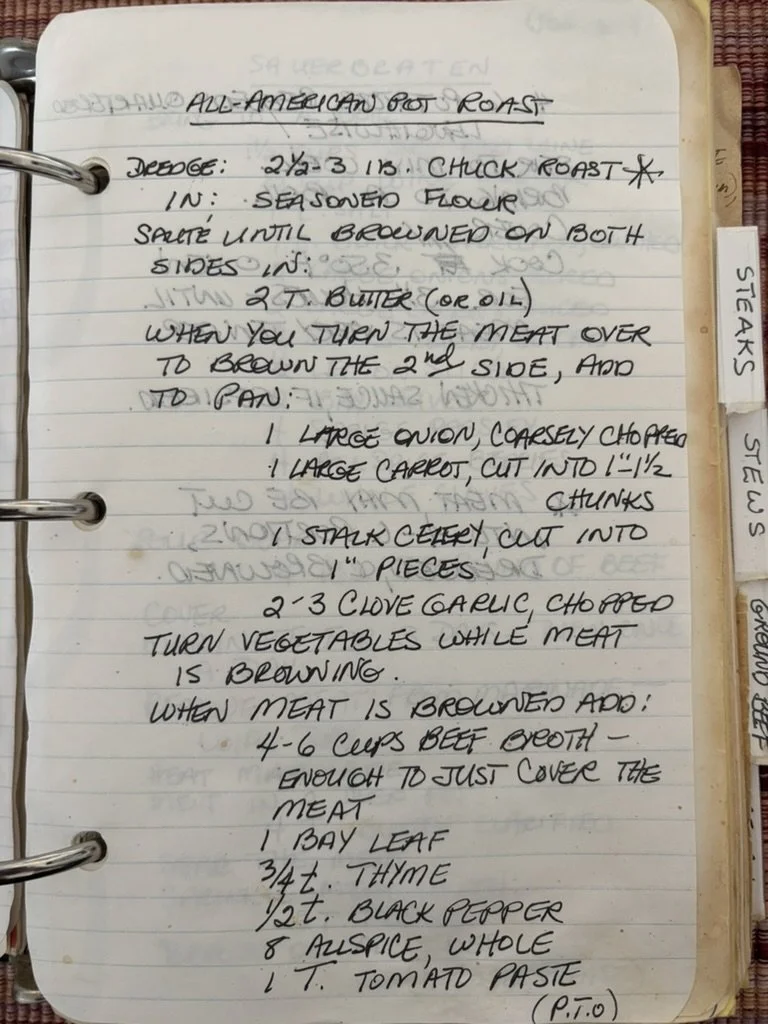 ALL-AMERICAN POT ROAST
DREDGE: 2½-3 lb. CHUCK ROAST *
IN: SEASONED FLOUR
SAUTÉ UNTIL BROWNED ON BOTH
SIDES IN:
2 T. BUTTER (OR OIL)
WHEN YOU TURN THE MEAT OVER
TO BROWN THE 2nd SIDE, ADD
TO PAN:
1 LARGE ONION, COARSELY CHOPPED
1 LARGE CARROT, CUT INTO 1"-1½
CHUNKS
1 STALK CELERY, CUT INTO
1" PIECES
2-3 CLOVE GARLIC, CHOPPED
TURN VEGETABLES WHILE MEAT
IS BROWNING.
WHEN MEAT IS BROWNED ADD:
4-6 CUPS BEEF BROTH -
ENOUGH TO JUST COVER THE
MEAT
1 BAY LEAF
3/4 t. THYME
1/2 t. BLACK PEPPER
8 ALLSPICE, WHOLE
1 T. TOMATO PASTE
(P.T.O)
STEAKS
STEWS
GROUND BEEF